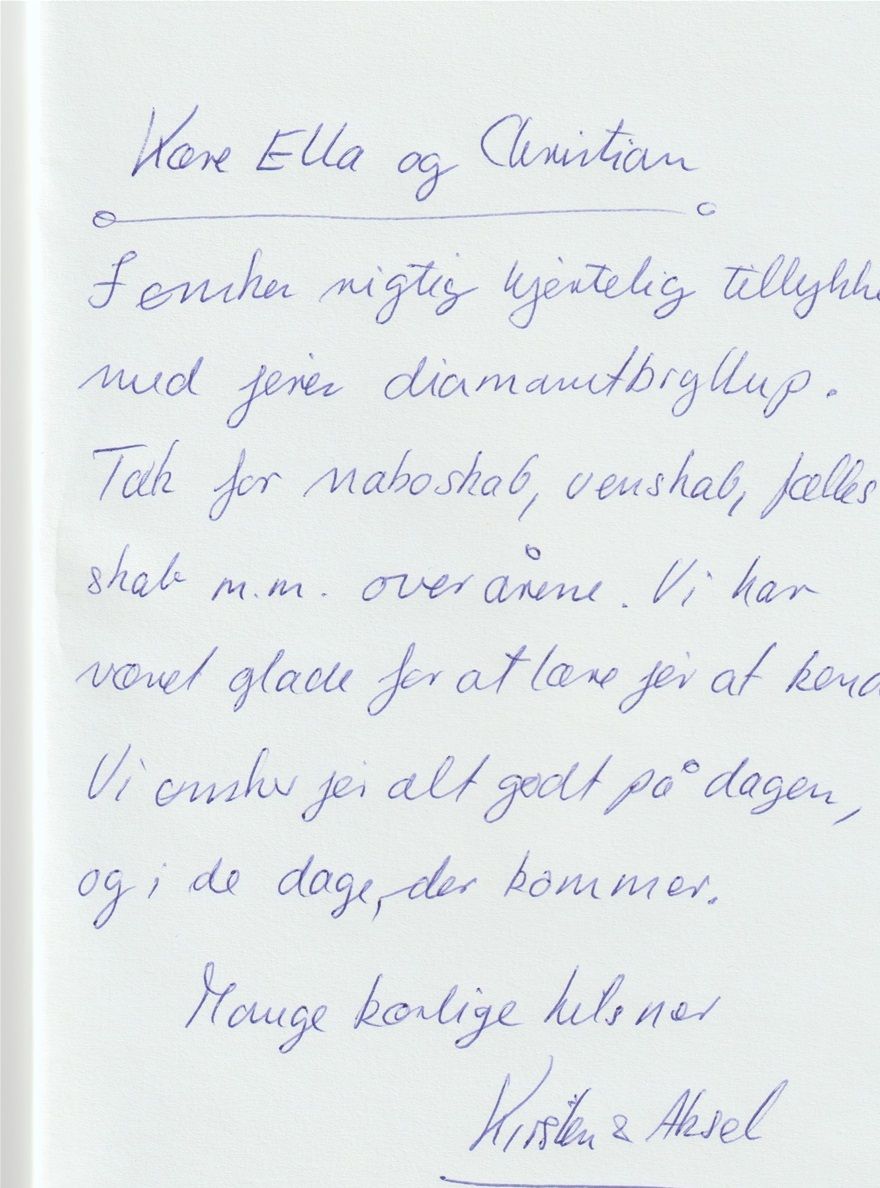 Kære Ella og Christian
I ønskes rigtig hjertelig tillykke
med jeres diamantbryllup.
Tak for naboskab, venskab, fælles
skab m.m. over årene. Vi har
været glade for at lære jer at kend
Vi ønsker jer alt godt på dagen,
og i de dage, der kommer.
Mange kærlige hilsner
Kirsten & Aksel